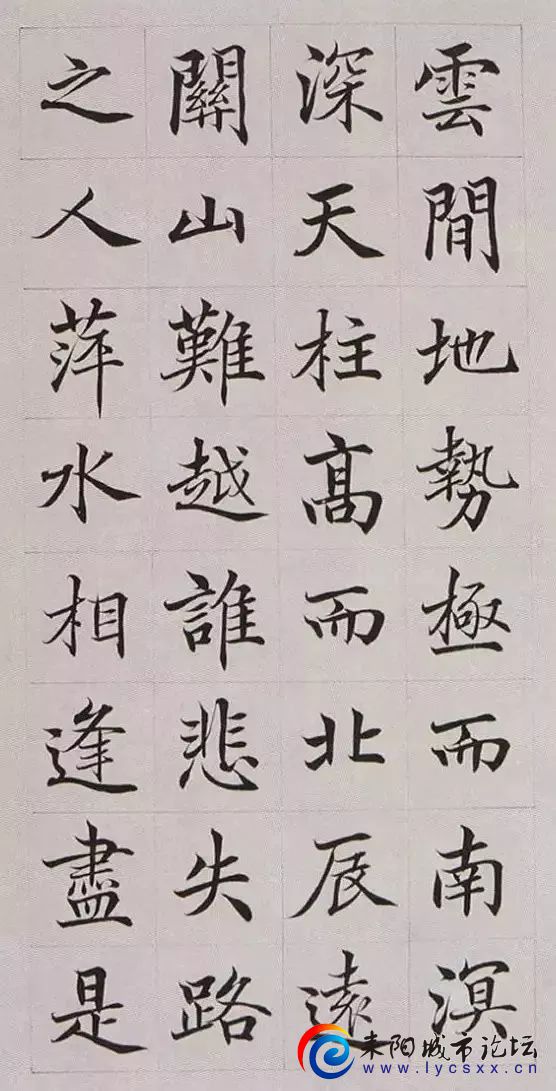 雲間地勢極而南溟
深天柱高而北辰遠
關山難越誰悲失路
之人萍水相逢盡是
耒阳城市论坛
www.lycsxx.cn